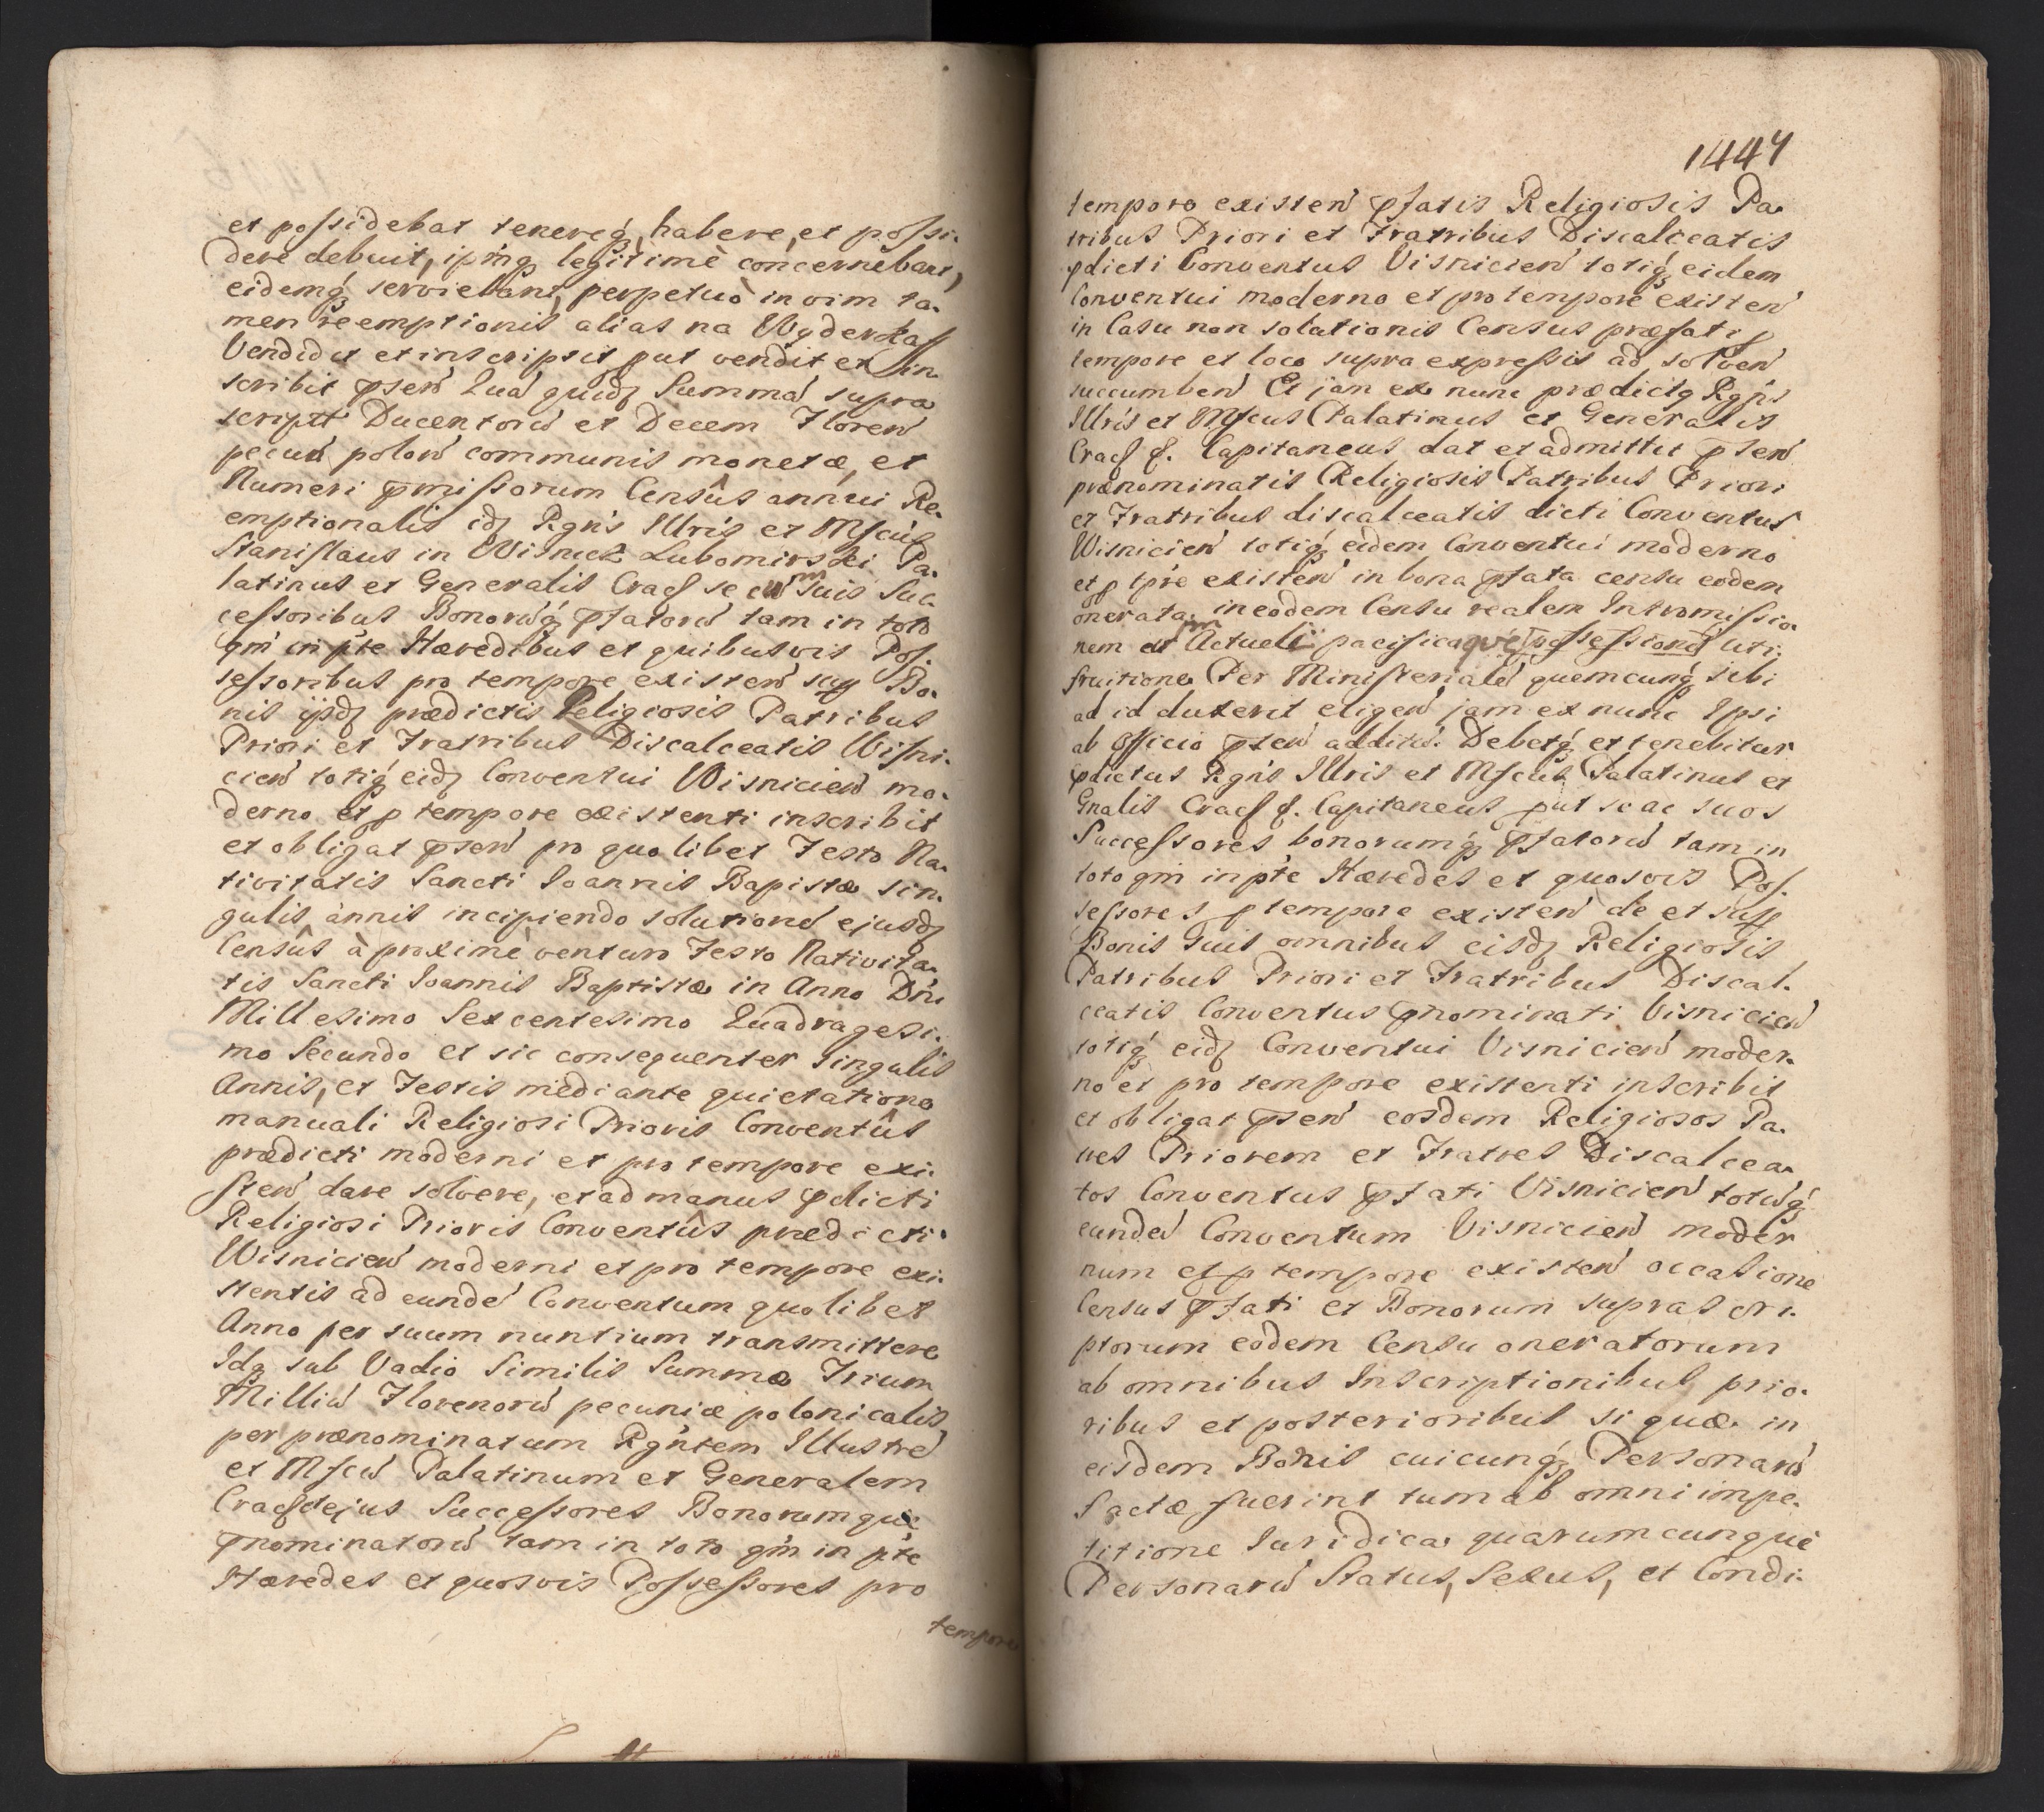 et possidebat tenereq́ʒ habere, et possi-
dere debuit, ipm̃qʒ legitimè concernebant,
eidemq́ʒ serviebant, perpetuò in vim ta-
men reemptionis alias na Wyderkaff
Vendidit et inscripsit put vendit et in-
scribit p̃seń Quá quidʒ Summá supra
script Ducentorú et Decem Floreń
pecuń poloń communis monetæ, et
Numeri p̃missorum Censûs annui Re-
emptionalis idʒ Rgńs Illrís et Mfcús
Stanislaus in Wisnicz Lubomirski Pa-
latinus et Generalis Cracſ se cum suis Suc-
cessoribus Bonorúq́ʒ p̃fatorú tam in toto
qm̃ in pte Hæredibus et quibusvis Pos-
sessoribus pro tempore existeń suisqʒ Bo-
nis ijsdʒ prædictis Religiosis Patribus
Priori et Fratribus Discalceatis Visni-
cień totiq́ʒ eidʒ Conventui Wisnicień mo-
derno et p tempore existenti inscribit
et obligat p̃seń pro quolibet Festo Na-
tivitatis Sancti Joannis Bapistæ sin-
gulis annis incipiendo solutioné ejusdʒ
Censûs à proximè venturo Festo Nativita-
tis Sancti Joannis Baptistæ in Anno Dńi
Millesimo Sexcentesimo Quadragesi-
mo Secundo et sic consequenter singulis
Annis, et Festis mediante quietatione
manuali Religiosi Prioris Conventûs
prædicti moderni et pro tempore exi-
steń dare solvere, et ad manus p̃dicti
Religiosi Prioris Conventûs prædicti
Wisnicień moderni et pro tempore exi-
stentis ad eundé Conventum quolibet
Anno per suum nuntium transmittere
Idqʒ sub Vadio Similis Summæ Trium
Milliú Florenorú pecuniæ polonicalis
per prænominatum Rgńtem Illustré
et Mfcú Palatinum et Generalem
Cracſ et ejus Successores Bonorumque
p̃nominatorú tam in toto qm̃ in pte
Hæredes et quosvis Possessores pro
tempore
1447
tempore existeń p̃fatis Religiosis Pa-
tribus Priori et Fratribus Discalceatis
p̃dicti Conventus Visnicień totiq́ʒ eidem
Conventui moderno et pro tempore existeń
in Casu non solutionis Census præfati p
tempore et loco supra expressis ad solveń
succumbeń Et jam ex nunc prædictq Rgńs
Illrís et Mfcus Palatinus et Generalis
Cracſ &. Capitaneus dat et admittit p̃seń
prænominatis Religiosis Patribus Priori
et Fratribus discalceatis dicti Conventus
Wisnicień totiq́ʒ eidem Conventui moderno
et p tpre existeń in bona p̃fata censu eodem
onerata, in eodem Censu realem Intromissio-
nem et Actuale pacificaque possessione uti-
fruitione Per Ministerialé quemcunq́ʒ sibi
ad id duxerit eligeń jam ex nunc Ipsi
ab Officio p̃seń additú. Debetq́ʒ et tenebitur
p̃dictus Rgńs Illris et Mfcus Palatinus et
Gnalis Cracſ &. Capitaneus put se ac suos
Successores bonorumq́ʒ p̃fatorú tam in
toto qm̃ in pte Hæredes et quosvis Pos-
sessores p tempore existeń de et sup
Bonis suis omnibus eisdʒ Religiosis
Patribus Priori et Fratribus Discal-
ceatis Conventus p̃nominati Visnicień
totiq́ʒ eidʒ Conventui Visnicień moder-
no et pro tempore existenti inscribit
et obligat p̃seń eosdem Religiosos Pa-
tres Priorem et Fratres Discalcea-
tos Conventus p̃fati Visnicień totúq́ʒ
eundé Conventum Visnicień moder
num et p tempore existeń occasione
Census p̃fati et Bonorum suprascri-
ptorum eodem Censu oneratorum
ab omnibus Inscriptionibus prio-
ribus et posterioribus si quæ in
eisdem Bonis cuicunq́ʒ Personarú
factæ fuerint tum ab omni impe-
titione Juridica quarumcunque
Personarú Status, Sexus, et Condi-